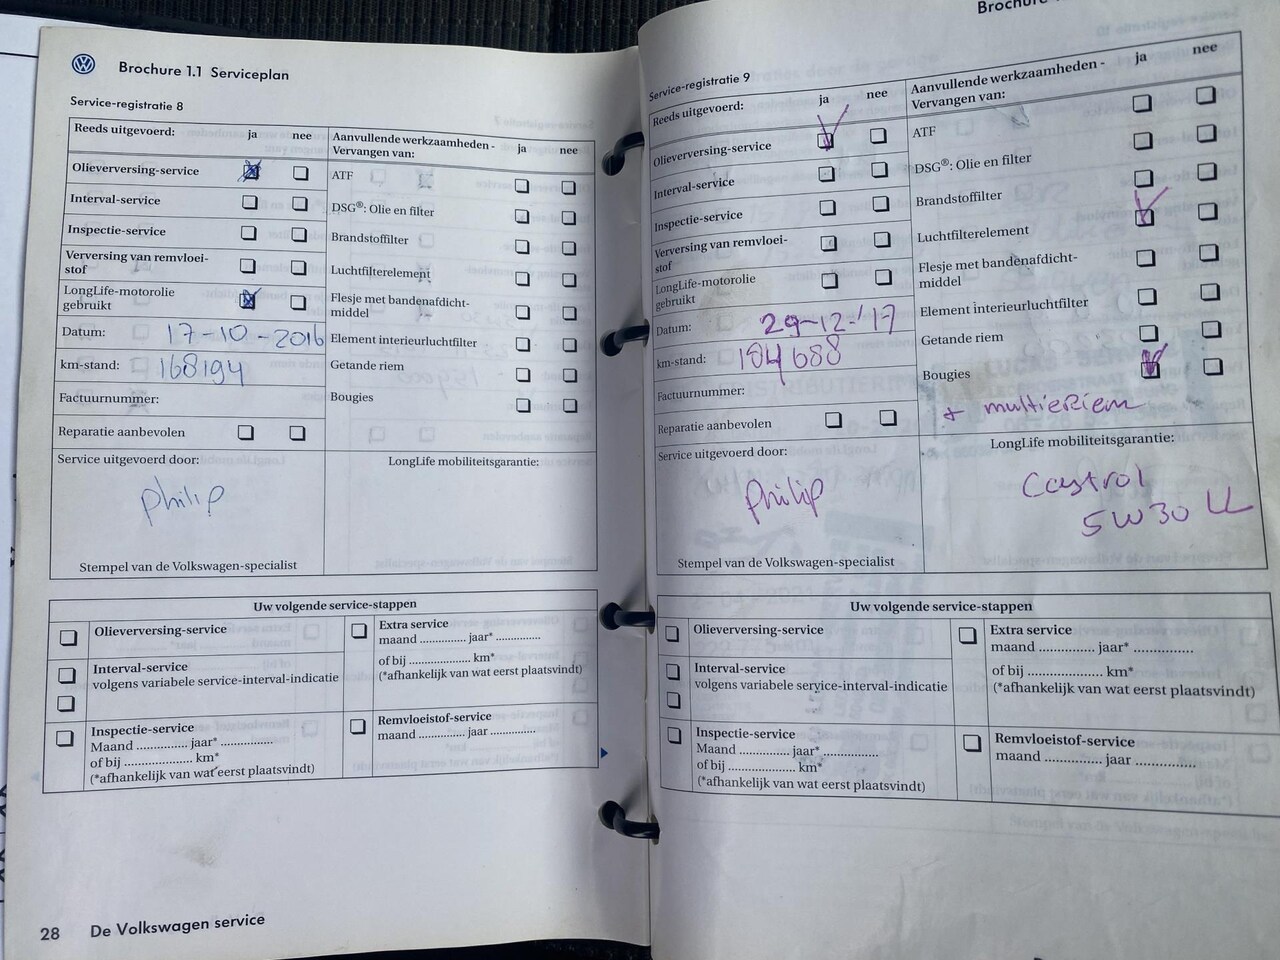 Brochure 1.1 Serviceplan
Service-registratie 8
Reeds uitgevoerd: ja nee
Olieverversing-service
Interval-service
Inspectie-service
Verversing van remvloei-
stof
LongLife-motorolie
gebruikt
Datum: 17-10-2016
km-stand: 168194
Factuurnummer:
Reparatie aanbevolen
Aanvullende werkzaamheden -
Vervangen van: ja nee
ATF
DSG®: Olie en filter
Brandstoffilter
Luchtfilterelement
Flesje met bandenafdicht-
middel
Element interieurluchtfilter
Getande riem
Bougies
Service uitgevoerd door:
Philip
Stempel van de Volkswagen-specialist
LongLife mobiliteitsgarantie:
Uw volgende service-stappen
Olieverversing-service
Interval-service
volgens variabele service-interval-indicatie
Inspectie-service
Maand ............... jaar* ...............
of bij .................... km*
(*afhankelijk van wat eerst plaatsvindt)
Extra service
maand .............. jaar* .............
of bij .................... km*
(*afhankelijk van wat eerst plaatsvindt)
Remvloeistof-service
maand .............. jaar ..............
28 De Volkswagen service
Brochure
Service-registratie 9
Reeds uitgevoerd: ja nee
Olieverversing-service
Interval-service
Inspectie-service
Verversing van remvloei-
stof
LongLife-motorolie
gebruikt
Datum: 29-12-'17
km-stand: 184688
Factuurnummer:
Reparatie aanbevolen
Aanvullende werkzaamheden -
Vervangen van: ja nee
ATF
DSG®: Olie en filter
Brandstoffilter
Luchtfilterelement
Flesje met bandenafdicht-
middel
Element interieurluchtfilter
Getande riem
Bougies
+ multieRiem
Service uitgevoerd door:
Philip
Stempel van de Volkswagen-specialist
LongLife mobiliteitsgarantie:
Castrol
5W30 LL
Uw volgende service-stappen
Olieverversing-service
Interval-service
volgens variabele service-interval-indicatie
Inspectie-service
Maand ............... jaar* ...............
of bij .................... km*
(*afhankelijk van wat eerst plaatsvindt)
Extra service
maand .............. jaar* ..............
of bij .................... km*
(*afhankelijk van wat eerst plaatsvindt)
Remvloeistof-service
maand .............. jaar ..............